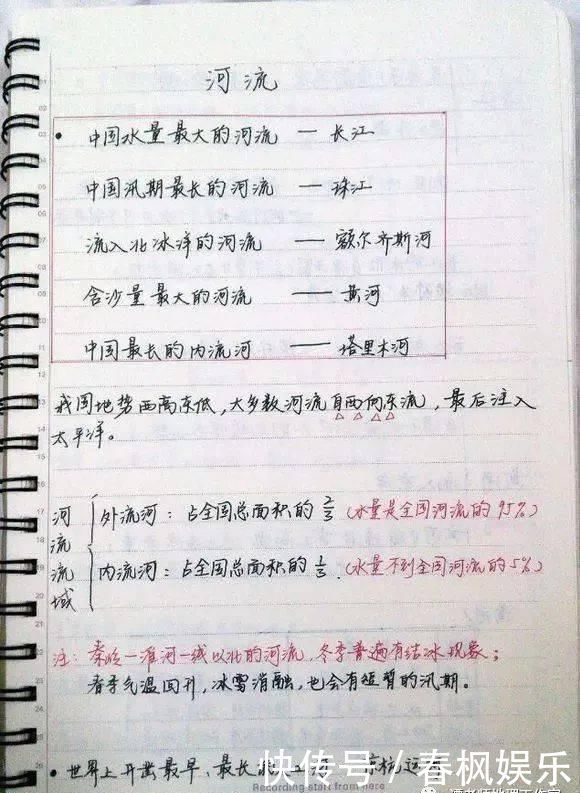 河流
• 中国水量最大的河流 — 长江
中国汛期最长的河流 — 珠江
流入北冰洋的河流 —— 额尔齐斯河
含沙量最大的河流 —— 黄河
中国最长的内流河 —— 塔里木河
我国地势西高东低,大多数河流自西向东流,最后注入
太平洋。
河流流域
外流河:占全国总面积的 2/3 (水量是全国河流的95%)
内流河:占全国总面积的 1/3 (水量不到全国河流的5%)
注:秦岭—淮河一线以北的河流,冬季普遍有结冰现象;
春季气温回升,冰雪消融,也会有短暂的汛期。
• 世界上开凿最早、最长
快传号/春枫娱乐
Recording start from here